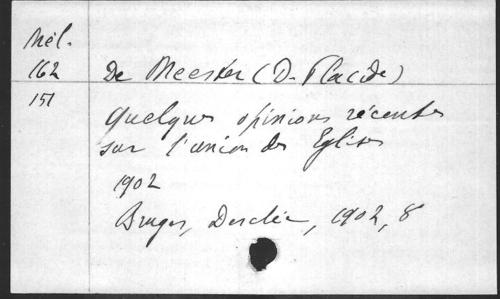 Mél.
162 De Meester (D. Placide)
151
Quelques opinions récentes
sur l'union des Eglises
1902
Bruges, Desclée, 1902, 8